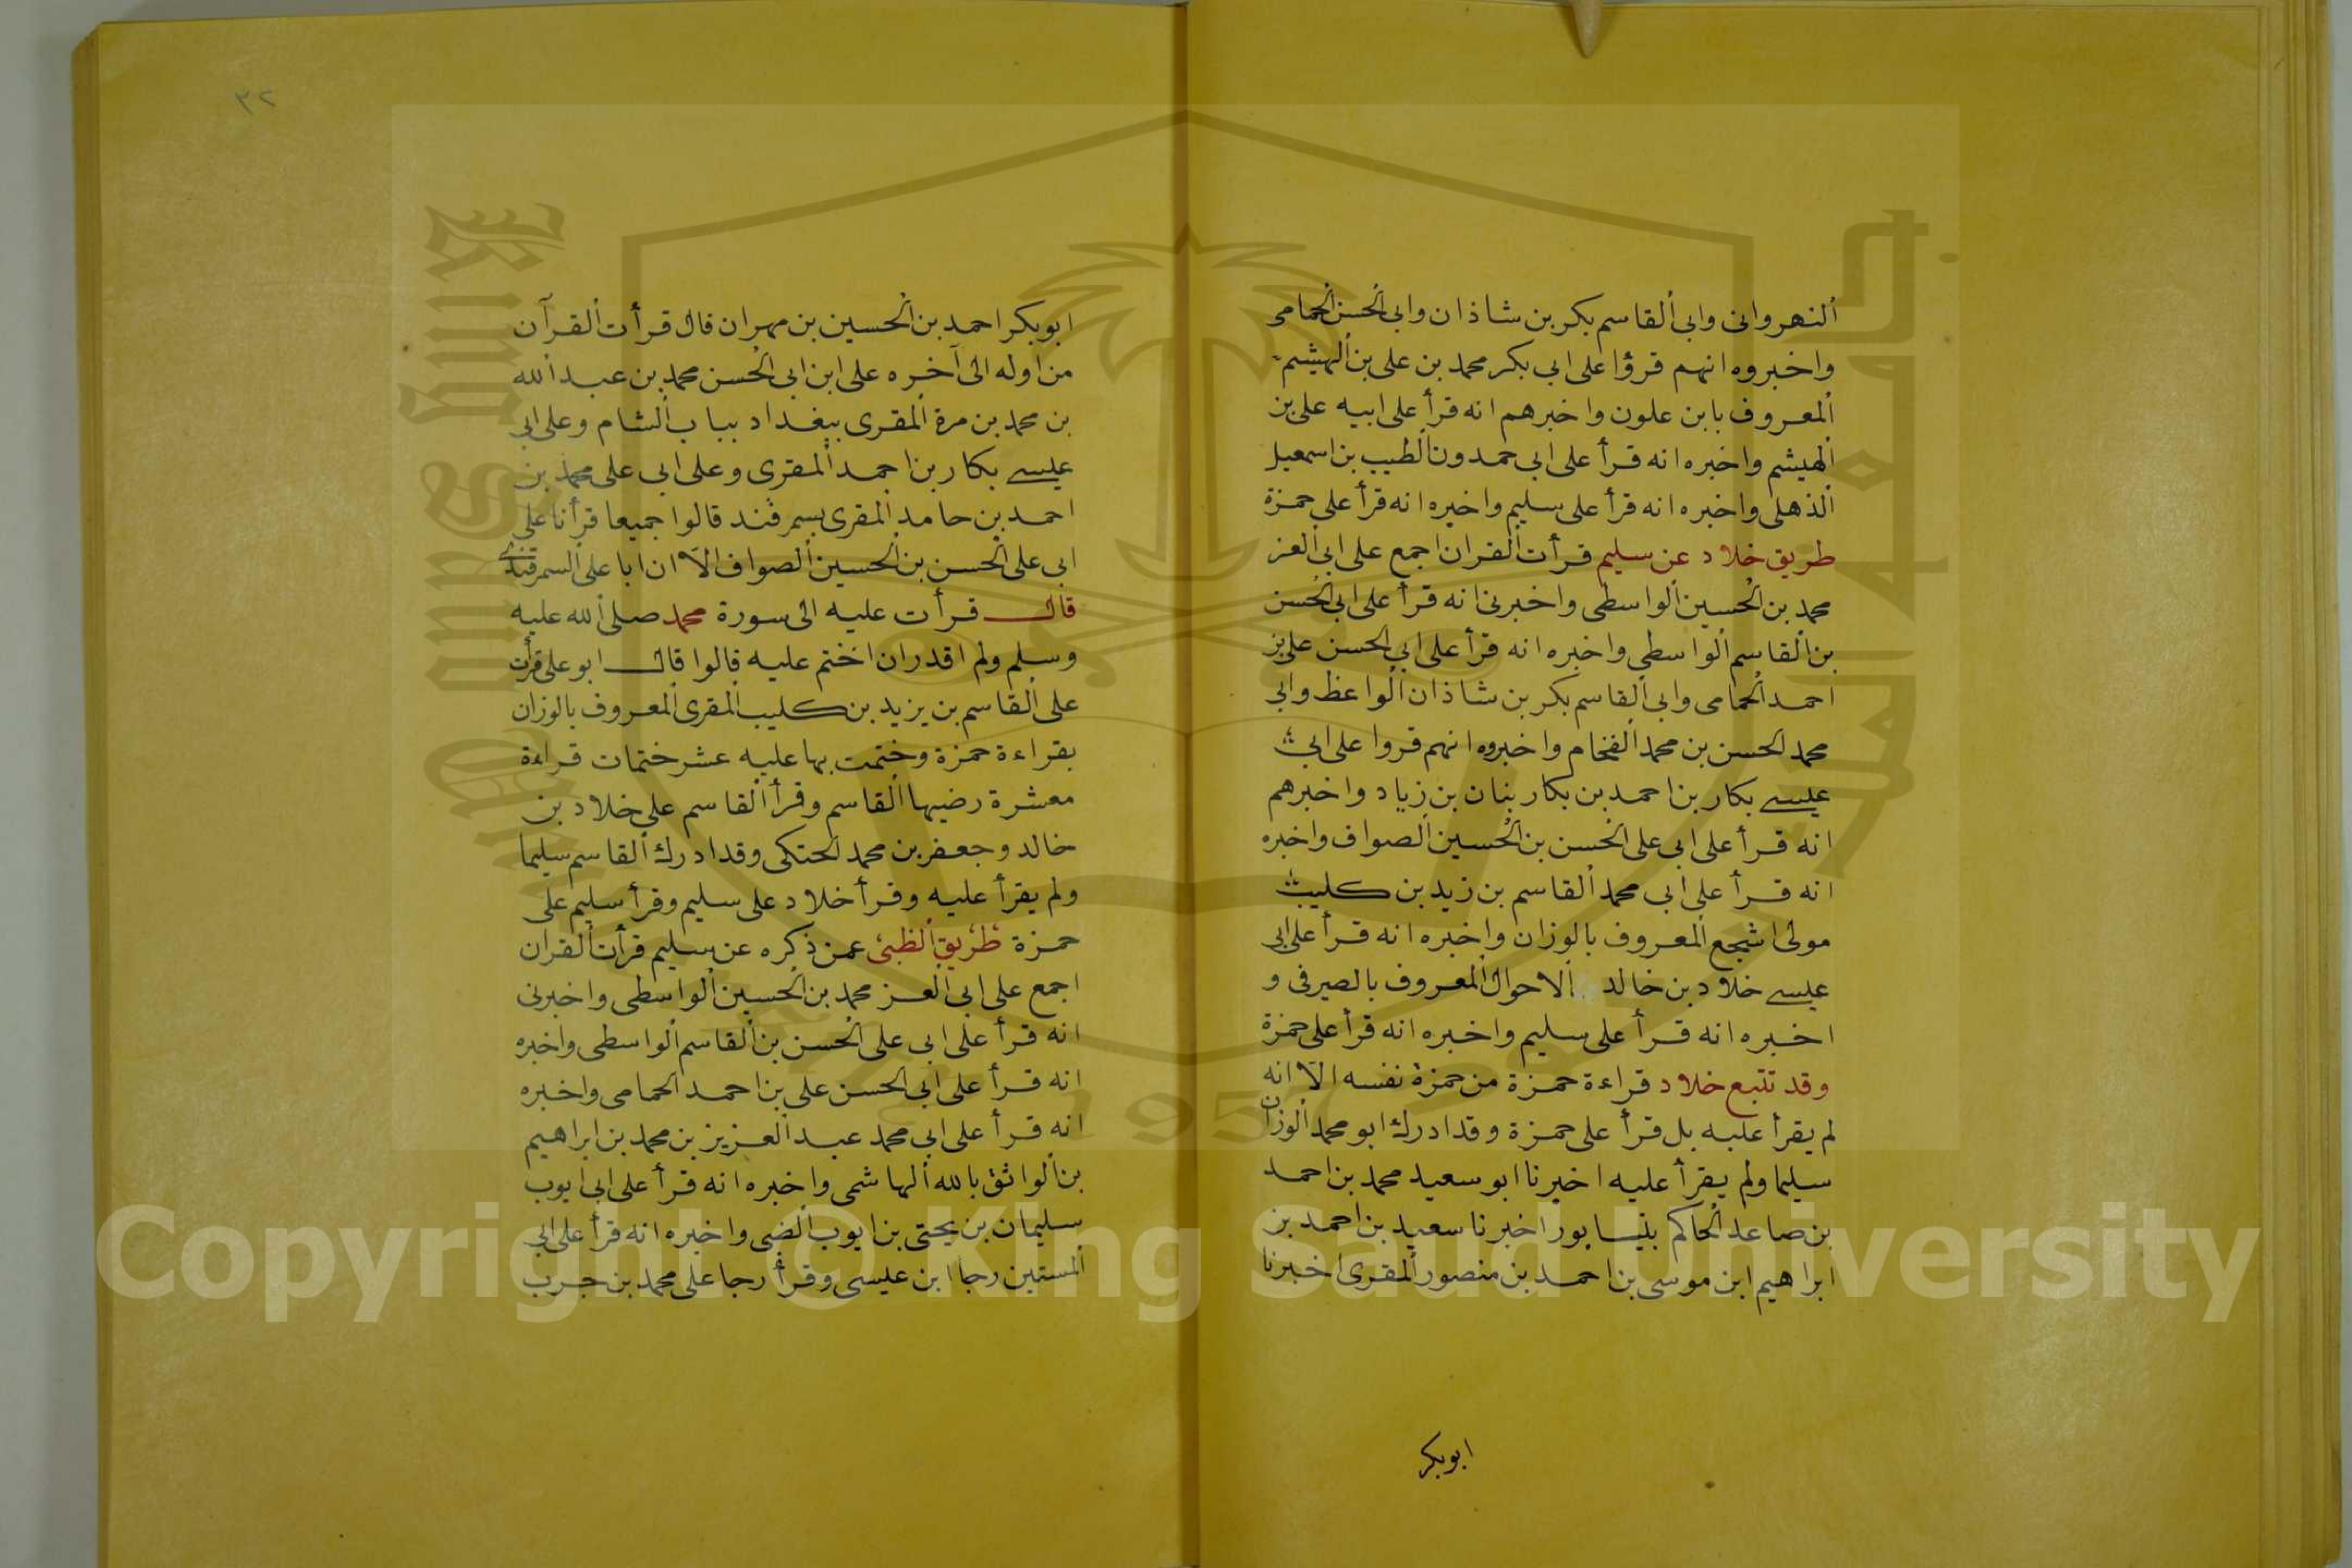 ألنهرواني وابي ألقاسم بكر بن شاذان وابي ألحسن ألحمامى
واخبروه انهم قرؤا على ابي بكر محمد بن على بن ألهيثم
ألمعروف بابن علون واخبرهم انه قرأ على ابيه على بن
ألهيثم واخبره انه قرأ على ابى حمدون ألطيب بن اسمعيل
ألذهلى واخبره انه قرأ على سليم واخبره انه قرأ على حمزة
طريق خلاد عن سليم قرأت ألقران اجمع على ابي ألعز
محمد بن ألحسين ألواسطى واخبرنى انه قرأ على ابي ألحسن
بن ألقاسم ألواسطى واخبره انه قرأ على ابي الحسن على بن
احمد ألحمامى وابى ألقاسم بكر بن شاذان ألواعظ وابي
محمد الحسن بن محمد ألفخام واخبروه انهم قروا على ابي
عيسى بكار بن احمد بن بكار بنان بن زياد واخبرهم
انه قرأ على ابى على ألحسن بن ألحسين ألصواف واخبره
انه قرأ على ابى محمد ألقاسم بن زيد بن كليب
مولى اشجع ألمعروف بالوزان واخبره انه قرأ على ابى
عيسى خلاد بن خالد الاحوال ألمعروف بالصيرفى و
اخبره انه قرأ على سليم واخبره انه قرأ على حمزة
وقد تتبع خلاد قراءة حمزة من حمزة نفسه الا انه
لم يقرأ عليه بل قرأ على حمزة وقد ادرك ابو محمد ألوزان
سليما ولم يقرأ عليه اخبرنا ابو سعيد محمد بن احمد
بن صاعد ألحاكم بنيسابور اخبرنا سعيد بن احمد بن
ابراهيم ابن موسى بن احمد بن منصور ألمقرى اخبرنا
ابوبكر
٣٢
ابوبكر احمد بن ألحسين بن مهران قال قرأت ألقرآن
من اوله الى آخره على ابن ابى ألحسن محمد بن عبد ألله
بن محمد بن مرة ألمقرى ببغداد بباب ألشام وعلى ابى
عيسى بكار بن احمد ألمقرى وعلى ابى على محمد بن
احمد بن حامد ألمقرى بسمرقند قالوا جميعا قرأنا على
ابى على ألحسن بن ألحسين ألصواف الا ان ابا على ألسمرقندى
قال قرأت عليه الى سورة محمد صلى ألله عليه
وسلم ولم اقدر ان اختم عليه قالوا قال ابو على قرأت
على ألقاسم بن يزيد بن كليب ألمقرى ألمعروف بالوزان
بقراءة حمزة وختمت بها عليه عشر ختمات قراءة
معشرة رضيها ألقاسم وقرأ ألقاسم على خلاد بن
خالد وجعفر بن محمد لحتكى وقد ادرك ألقاسم سليما
ولم يقرأ عليه وقرأ خلاد على سليم وقرأ سليم على
حمزة طريق ألظبى عمن ذكره عن سليم قرأت ألقران
اجمع على ابى ألعز محمد بن ألحسين ألواسطى واخبرنى
انه قرأ على ابى على ألحسن بن ألقاسم ألواسطى واخبره
انه قرأ على ابى الحسن على بن احمد الحمامى واخبره
انه قرأ على ابى محمد عبد ألعزيز بن محمد بن ابراهيم
بن ألواثق بالله ألهاشمى واخبره انه قرأ على ابى ايوب
سليمان بن يحيى بن ايوب ألضبى واخبره انه قرأ على ابى
ألمستين رجا ابن عيسى وقرأ رجا على محمد بن حرب
Copyright © King Saud University
1957